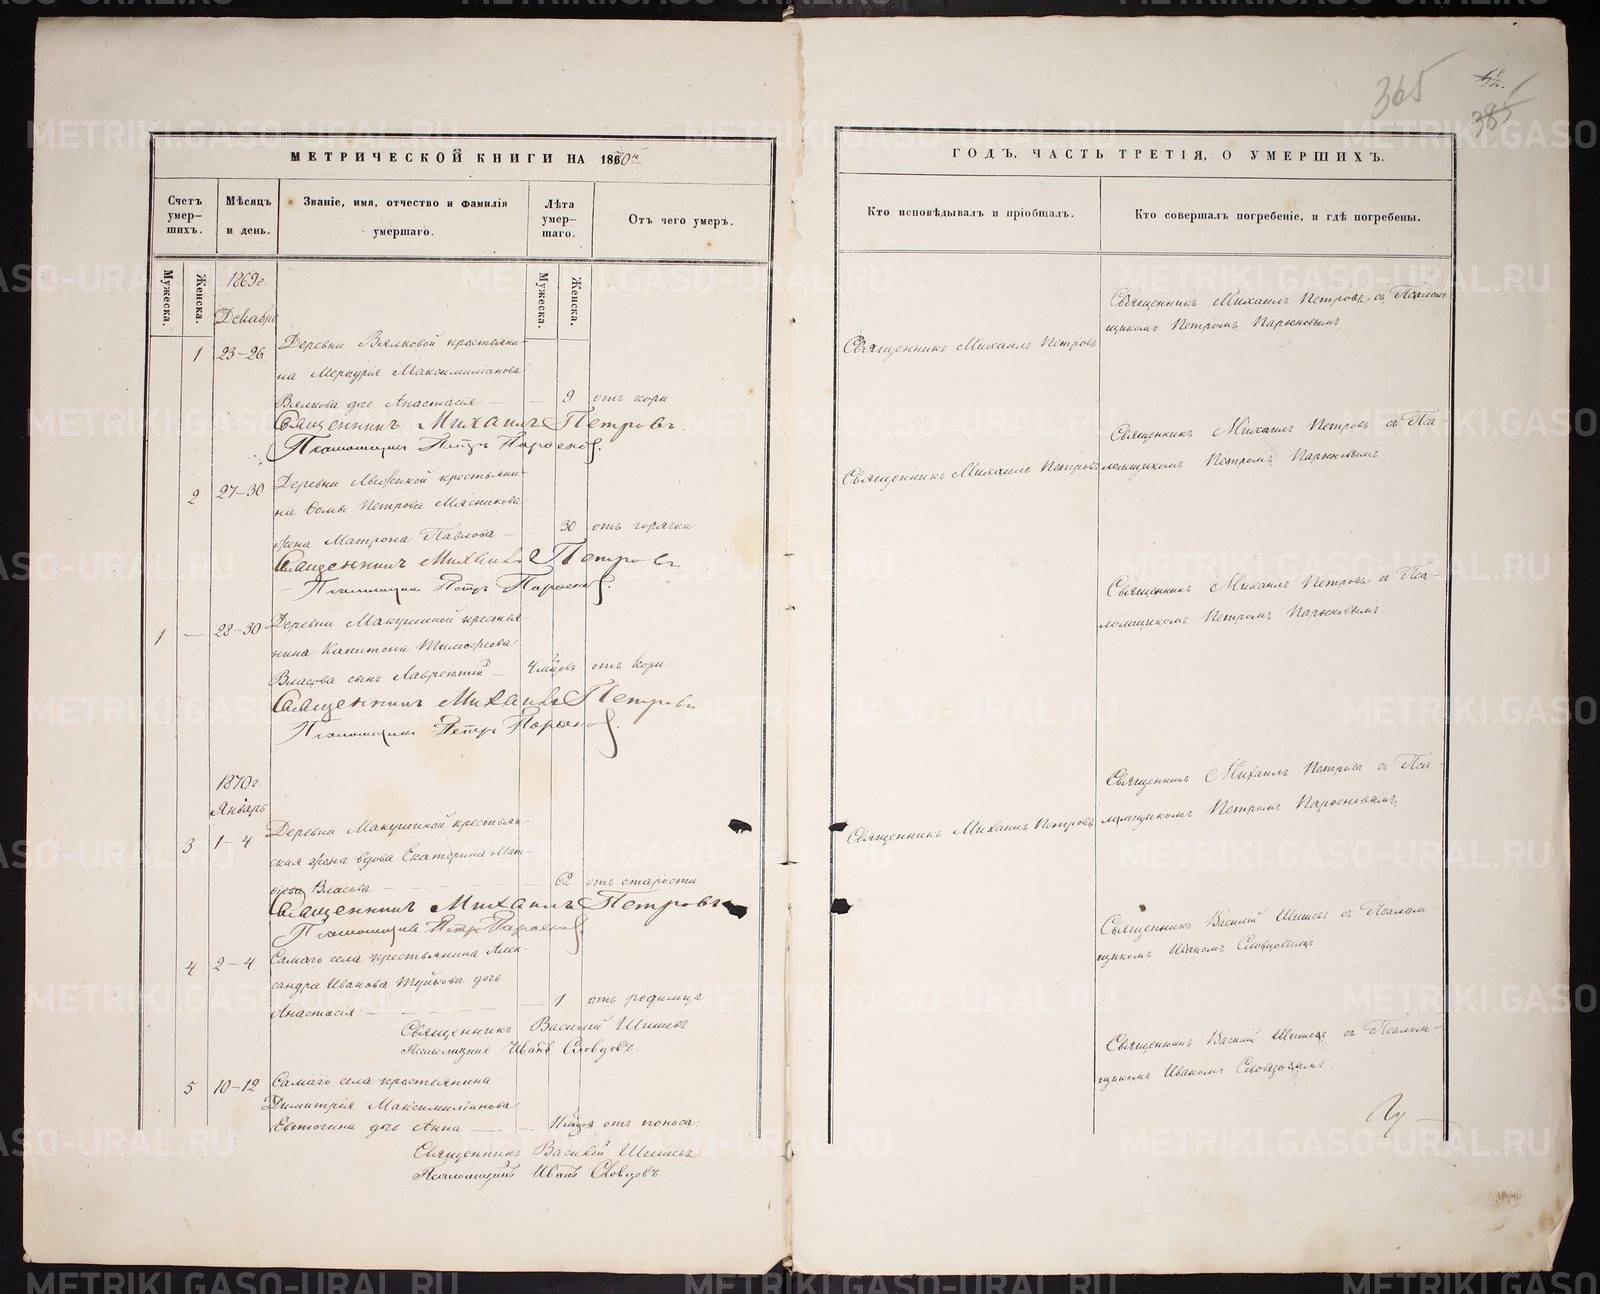 365
385
МЕТРИЧЕСКОЙ КНИГИ НА 1870й
ГОДЪ, ЧАСТЬ ТРЕТІЯ, О УМЕРШИХЪ.
Счетъ умер-шихъ.
Мѣсяцъ и день.
Званіе, имя, отчество и фамилія умершаго.
Лѣта умер-шаго.
Отъ чего умеръ.
Кто исповѣдывалъ и пріобщалъ.
Кто совершалъ погребеніе, и гдѣ погребены.
Мужеска.
Женска.
Мужеска.
Женска.
1869г.
Декабрь
1 23-26 Деревни Вялковой крестьяни-
на Меркурія Максимиліанова
Вялкова дочь Анастасія — — 9 отъ кори
Священникъ Михаилъ Петровъ
Священникъ Михаилъ Петровъ съ Псалом-
щикомъ Петромъ
Священникъ Михаилъ Петровъ.
Псаломщикъ Петръ
2 27-30 Деревни крестьяни-
на Ѳомы Петрова Мясникова
жена Матрона Павлова — 30 отъ горячки
Священникъ Михаилъ Петровъ
Священникъ Михаилъ Петровъ съ Пса-
ломщикомъ Петромъ
Священникъ Михаилъ Петровъ
Псаломщикъ Петръ
1 — 28-30 Деревни Макушиной крестья-
нина Капитона Тимофеева
Власова сынъ Лаврентій — 4 мѣсц. отъ кори.
Священникъ Михаилъ Петровъ съ Пса-
ломщикомъ Петромъ
Священникъ Михаилъ Петровъ
Псаломщикъ Петръ
1870г.
Январь
3 1-4 Деревни Макушиной крестьян-
ская жена вдова Екатерина Мат-
ѳіева Власова — 62 отъ старости
Священникъ Михаилъ Петровъ
Священникъ Михаилъ Петровъ съ Пса-
ломщикомъ Петромъ
Священникъ Михаилъ Петровъ
Псаломщикъ Петръ
4 2-4 Самаго села крестьянина Алек-
сандра Иванова дочь
Анастасія — — 1 отъ родимца
Священникъ Василій Шишевъ съ Псалом-
щикомъ Иваномъ Словцовымъ
Священникъ Василій Шишевъ.
Псаломщикъ Иванъ Словцовъ.
5 10-12 Самаго села крестьянина
Димитрія Максимиліанова
Евтюгина дочь Анна — — отъ поноса.
Священникъ Василій Шишевъ съ Псалом-
щикомъ Иваномъ Словцовымъ.
Священникъ Василій Шишевъ
Псаломщикъ Иванъ Словцовъ.
METRIKI.GASO-URAL.RU